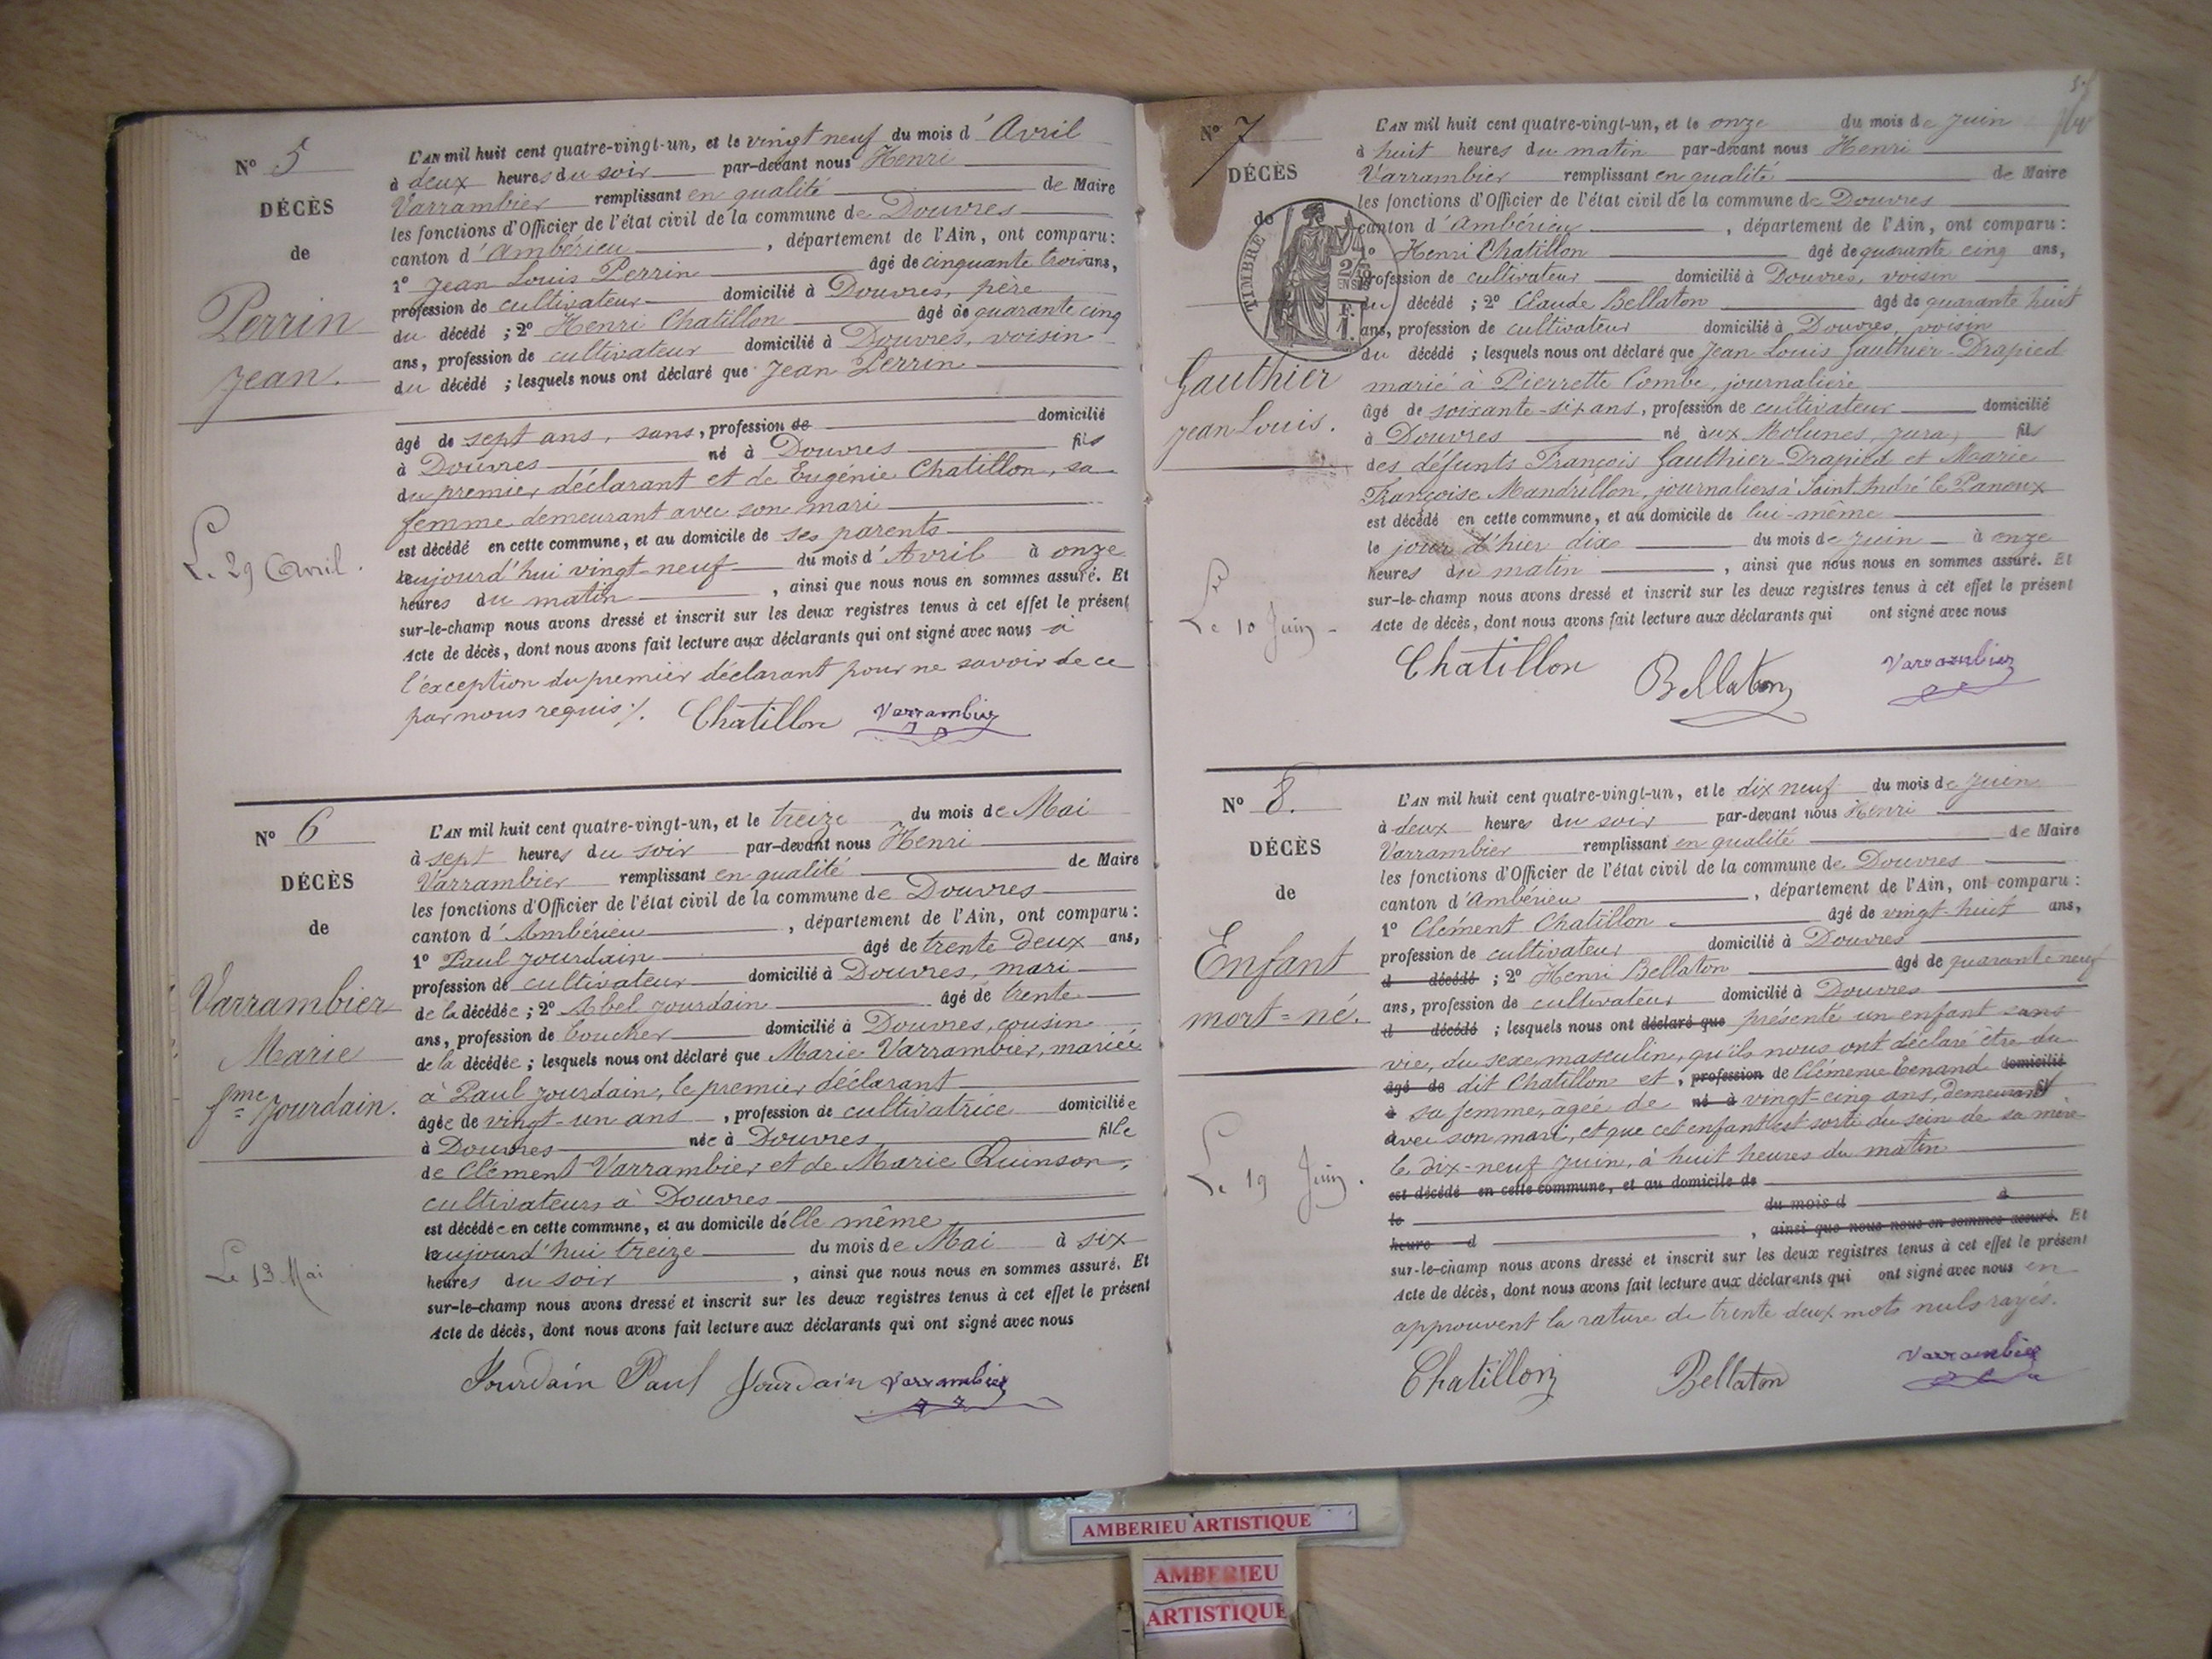 N° 5
DÉCÈS
de
Perrin
Jean.
Le 29 Avril.
L'AN mil huit cent quatre-vingt-un, et le vingt neuf du mois d'Avril
à deux heures du soir par-devant nous Henri
Varrambier remplissant en qualité de Maire
les fonctions d'Officier de l'état civil de la commune de Douvres
canton d'Ambérieu, département de l'Ain, ont comparu:
1° Jean Louis Perrin âgé de cinquante trois ans,
profession de cultivateur domicilié à Douvres, père
du décédé ; 2° Henri Chatillon âgé de quarante cinq
ans, profession de cultivateur domicilié à Douvres, voisin
du décédé ; lesquels nous ont déclaré que Jean Perrin
âgé de sept ans, sans, profession de domicilié
à Douvres né à Douvres fils
du premier déclarant et de Eugénie Chatillon, sa
femme demeurant avec son mari
est décédé en cette commune, et au domicile de ses parents
aujourd'hui vingt-neuf du mois d'Avril à onze
heures du matin, ainsi que nous nous en sommes assuré. Et
sur-le-champ nous avons dressé et inscrit sur les deux registres tenus à cet effet le présent
Acte de décès, dont nous avons fait lecture aux déclarants qui ont signé avec nous à
l'exception du premier déclarant pour ne savoir de ce
par nous requis ./. Chatillon Varrambier
N° 6
DÉCÈS
de
Varrambier
Marie
fme Jourdain.
Le 13 Mai
L'AN mil huit cent quatre-vingt-un, et le treize du mois de Mai
à sept heures du soir par-devant nous Henri
Varrambier remplissant en qualité de Maire
les fonctions d'Officier de l'état civil de la commune de Douvres
canton d'Ambérieu, département de l'Ain, ont comparu:
1° Paul Jourdain âgé de trente deux ans,
profession de cultivateur domicilié à Douvres, mari
de la décédée ; 2° Abel Jourdain âgé de trente
ans, profession de boucher domicilié à Douvres, cousin
de la décédée ; lesquels nous ont déclaré que Marie Varrambier, mariée
à Paul Jourdain, le premier déclarant
âgée de vingt-un ans, profession de cultivatrice domiciliée
à Douvres née à Douvres fille
de Clément Varrambier et de Marie Quinson,
cultivateurs à Douvres
est décédée en cette commune, et au domicile d'elle même
aujourd'hui treize du mois de Mai à six
heures du soir, ainsi que nous nous en sommes assuré. Et
sur-le-champ nous avons dressé et inscrit sur les deux registres tenus à cet effet le présent
Acte de décès, dont nous avons fait lecture aux déclarants qui ont signé avec nous
Jourdain Paul Jourdain Varrambier
N° 7
DÉCÈS
de
TIMBRE
Gauthier
Jean Louis.
Le 10 Juin
L'AN mil huit cent quatre-vingt-un, et le onze du mois de Juin
à huit heures du matin par-devant nous Henri
Varrambier remplissant en qualité de Maire
les fonctions d'Officier de l'état civil de la commune de Douvres
canton d'Ambérieu, département de l'Ain, ont comparu:
1° Henri Chatillon âgé de quarante cinq ans,
profession de cultivateur domicilié à Douvres, voisin
du décédé ; 2° Claude Bellaton âgé de quarante huit
ans, profession de cultivateur domicilié à Douvres, voisin
du décédé ; lesquels nous ont déclaré que Jean Louis Gauthier-Drapied
marié à Pierrette Combe, journalière
âgé de soixante-six ans, profession de cultivateur domicilié
à Douvres né aux Molunes, Jura, fils
des défunts François Gauthier-Drapied et Marie
Françoise Mandrillon, journaliers à Saint André le Panoux
est décédé en cette commune, et au domicile de lui-même
le jour d'hier dix du mois de Juin à onze
heures du matin, ainsi que nous nous en sommes assuré. Et
sur-le-champ nous avons dressé et inscrit sur les deux registres tenus à cet effet le présent
Acte de décès, dont nous avons fait lecture aux déclarants qui ont signé avec nous
Chatillon Bellaton Varrambier
N° 8.
DÉCÈS
de
Enfant
mort=né.
Le 19 Juin.
L'AN mil huit cent quatre-vingt-un, et le dix neuf du mois de Juin
à deux heures du soir par-devant nous Henri
Varrambier remplissant en qualité de Maire
les fonctions d'Officier de l'état civil de la commune de Douvres
canton d'Ambérieu, département de l'Ain, ont comparu:
1° Clément Chatillon âgé de vingt-huit ans,
profession de cultivateur domicilié à Douvres
d décédé ; 2° Henri Bellaton âgé de quarante neuf
ans, profession de cultivateur domicilié à Douvres
d décédé ; lesquels nous ont déclaré que présenté un enfant sans
vie, du sexe masculin, qu'ils nous ont déclaré être du
âgé de dit Chatillon et, profession de Clémence Tenand domicilié
à sa femme, âgée de né à vingt-cinq ans, demeurant fil
avec son mari, et que cet enfant est sorti du sein de sa mère
le dix-neuf Juin, à huit heures du matin
est décédé en cette commune, et au domicile de
le du mois d à
heure d, ainsi que nous nous en sommes assuré. Et
sur-le-champ nous avons dressé et inscrit sur les deux registres tenus à cet effet le présent
Acte de décès, dont nous avons fait lecture aux déclarants qui ont signé avec nous en
approuvent la rature de trente deux mots nuls rayés.
Chatillon Bellaton Varrambier
AMBERIEU ARTISTIQUE
AMBERIEU
ARTISTIQUE